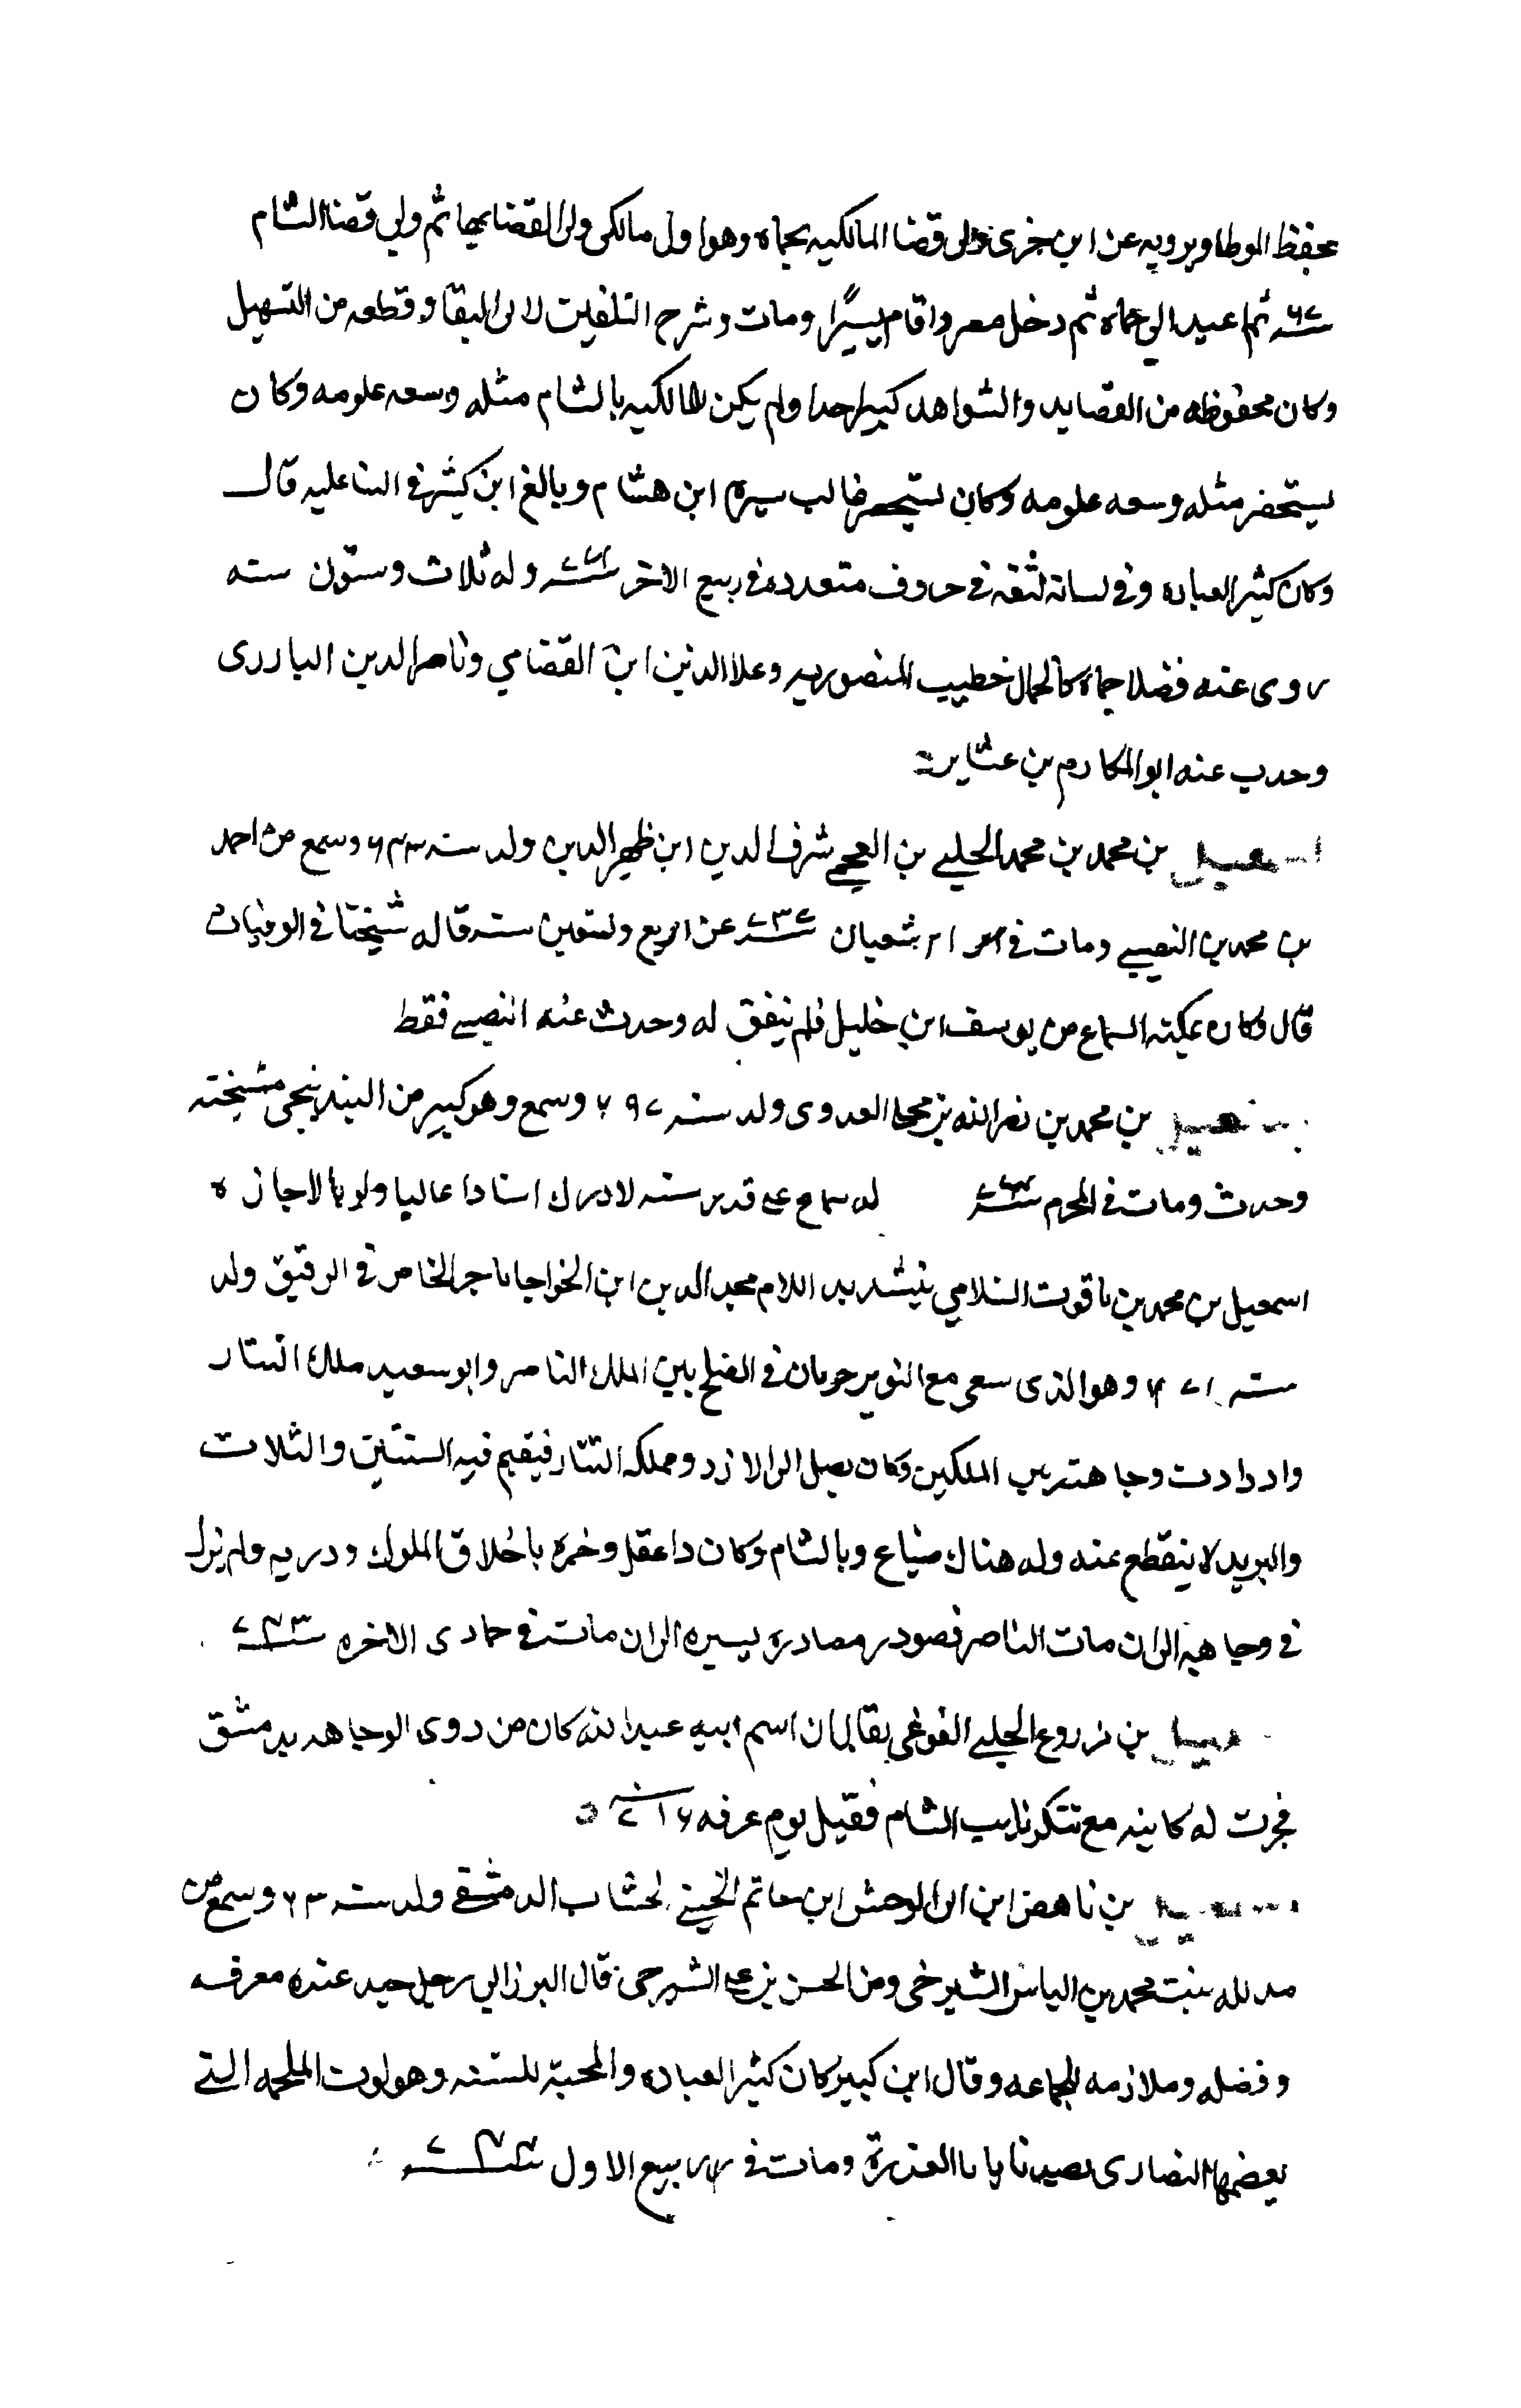 يحفظ الموطا ويرويه عن ابن جزى وولى قضا المالكيه بحماه وهو اول مالكى ولى القضا بها ثم ولي قضا الشام
سنه ٧٦٧ ثم اعيد الي حماه ثم دخل مصر واقام يسيرًا ومات وشرح التلقين لابى البقا وقطعه من التسهيل
وكان محفوظه من القصايد والشواهد كثيرا جدا ولم يكن للمالكيه بالشام مثله وسعه علومه وكان
يستحضر مثله وسعه علومه وكان يستحضر غالب سيره ابن هشام وبالغ ابن كثير فى الثنا عليه قال
وكان كثير العباده وفى لسانه لثغه فى حروف متعدده فى ربيع الاخر سنه وله ثلاث وستون سنه
روى عنه فضلا حماه كالجمال خطيب المنصوريه وعلا الدين ابن القضامي وناصر الدين البارزى
وحدث عنه ابو المكارم بن عشاير
اسمعيل بن محمد بن محمد الحلبي بن العجمي شرف الدين ابن ظهير الدين ولد سنه ٦٤٣ وسمع من احمد
بن محمد بن النصيبي ومات فى شعبان سنه ٧٣٧ عن اربع وتسعين سنه قاله شيخنا فى الوفيات
قال وكان يمكنه السماع من يوسف ابن خليل فلم يتفق له وحدث عنه النصيبي فقط
اسمعيل بن محمد بن نصر الله بن محيا العدوى ولد سنه ٦٩٧ وسمع وهو كبير من البندنيجى مشيخته
وحدث ومات فى المحرم سنه له سماع على قدر سنه لادرك اسنادا عاليا ولو بالاجازه
اسمعيل بن محمد بن ياقوت السلامي بتشديد اللام مجد الدين ابن الخواجا تاجر الخاص فى الرقيق ولد
سنه ٦٧١ وهو الذى سعى مع النوير جوبان فى الصلح بين الملك الناصر وابو سعيد ملك التتار
وازدادت وجاهته بين الملكين وكان يصل الى الازدو مملكه التتار فيقيم فيه السنتين والثلاث
والبريد لا ينقطع عنه وله هناك ضياع وبالشام وكان ذا عقل وخبره باخلاق الملوك ودربه ولم يزل
فى وجاهته الى ان مات الناصر فصودر مصادره يسيره الى ان مات فى جمادى الاخره سنه ٧٤٣
اسمعيل بن مزروع الحلبي الفوغى يقال ان اسم ابيه عبد الله كان من ذوى الوجاهه بدمشق
فجرت له كاينه مع تنكز نايب الشام فقتل يوم عرفه سنه ٧١٦
اسمعيل بن ناهض ابن ابى الوحش ابن حاتم الخشاب الدمشقي ولد سنه ٦٣ وسمع من
مدلله بنت محمد بن الياس الشيرجى ومن الحسن بن على الشيرجى قال البرزالي رجل جيد عنده معرفه
وفضله وملازمه للجماعه وقال ابن كثير كان كثير العباده والمحبة للسنه وهو لوث الملحمه التي
يعظمها النصارى بصيدنايا بالعذرة ومات فى ربيع الاول سنه